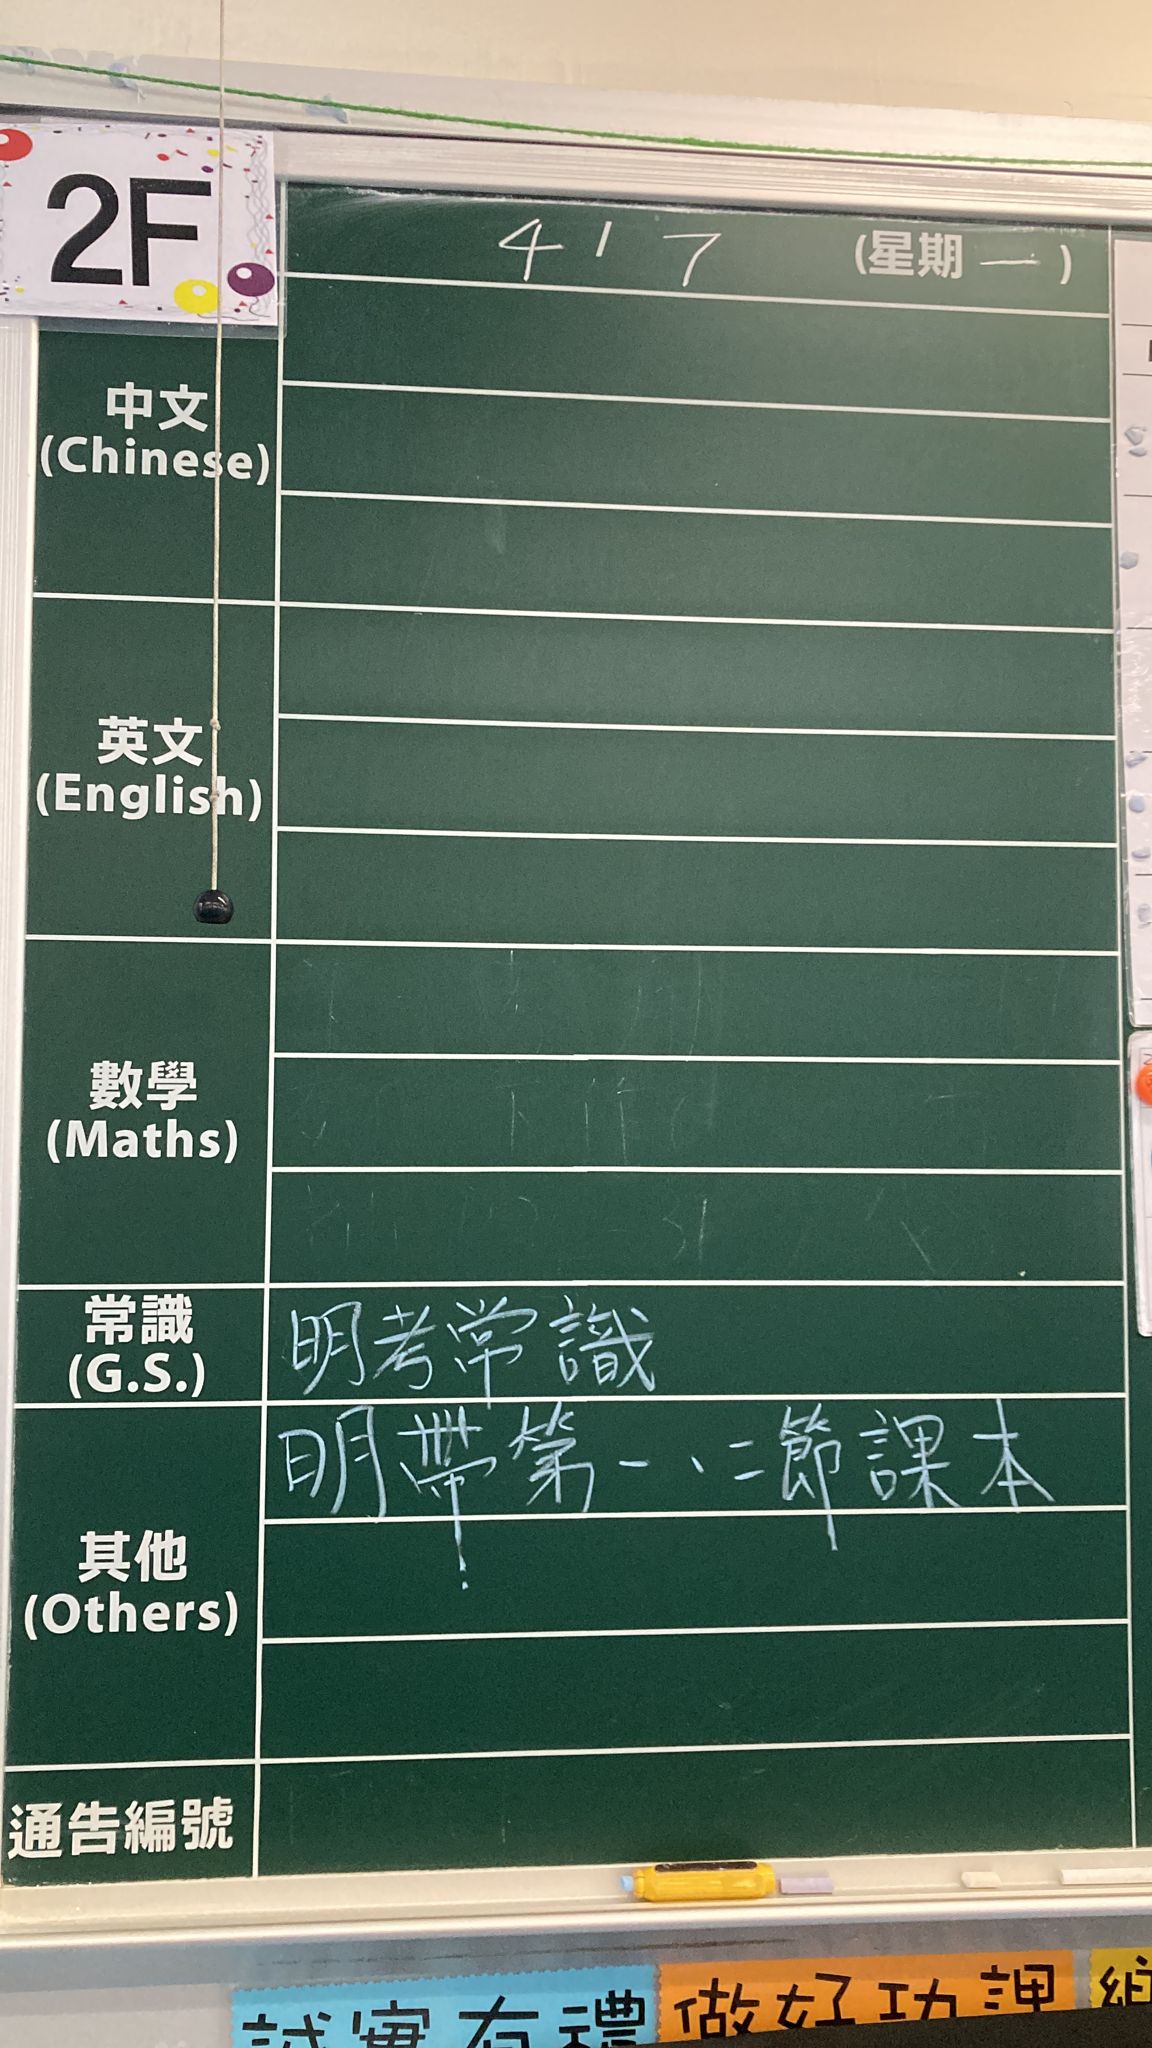 2F
4 ' 7 (星期一)
中文
(Chinese)
英文
(English)
數學
(Maths)
常識
(G.S.)
明考常識
其他
(Others)
明帶第一、二節課本
通告編號
誠實有禮
做好功課